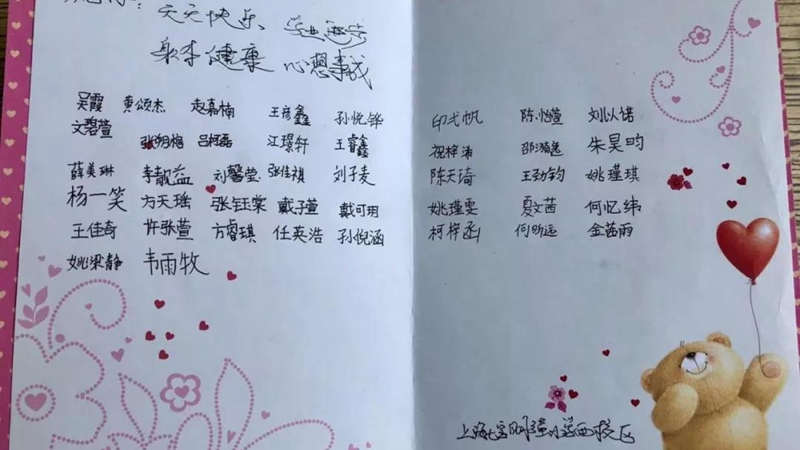 天天快乐、学业进步
身体健康 心想事成
吴霞 黄颂杰 赵嘉楠 王彦鑫 孙悦铧
文碧萱 张明楷 吕柯磊 江璟轩 王睿鑫
薛美琳 李靓益 刘馨莹 张佳祺 刘子麦
杨一笑 方天瑞 张钰棠 戴子萱 戴可玥
王佳奇 许张萱 方睿琪 任英浩 孙悦涵
姚梁静 韦雨牧
印弋帆 陈怡萱 刘以诺
祝梓涵 邵潞逸 朱昊昀
陈天琦 王劲钧 姚瑾琪
姚瑾雯 夏文茜 何忆纬
柯梓函 何昕远 金茜雨
上海 西校区